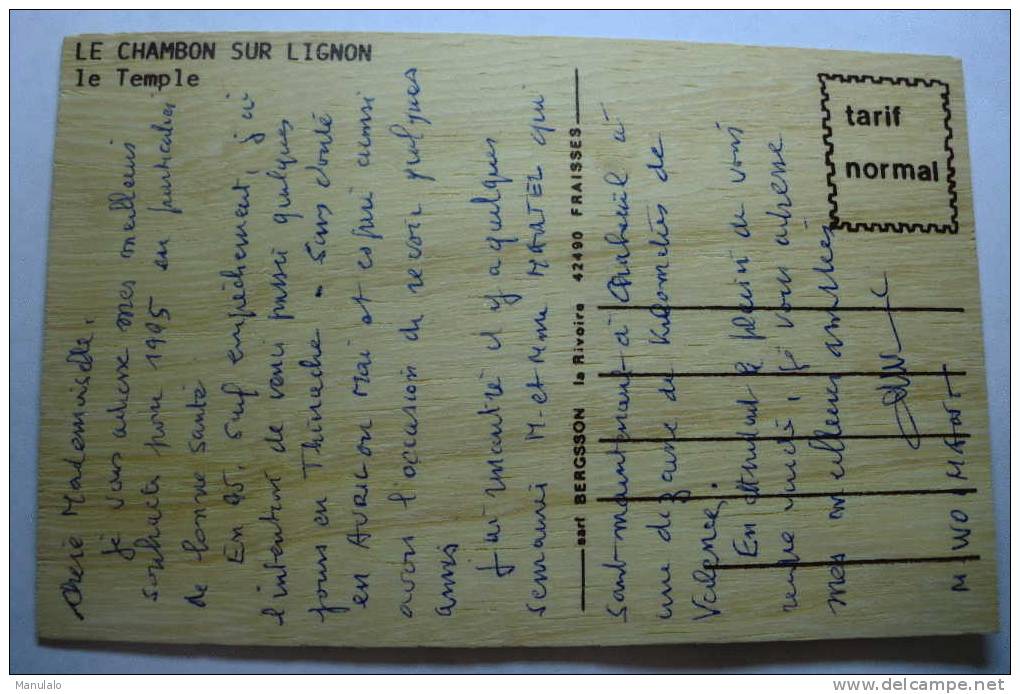 LE CHAMBON SUR LIGNON
le Temple
tarif
normal
sarl BERGSSON la Rivoire 42490 FRAISSES
Chère Mademoiselle,
Je vous adresse mes meilleurs
souhaits pour 1995 en particulier
de bonne santé
En 95, sauf empêchement, j'ai
l'intention de venir passer quelques
jours en Thiérache - sans doute
en AVRIL ou Mai et espère ainsi
avoir l'occasion de revoir quelques
amis
J'ai rencontré il y a quelques
semaines M. et Mme MARTEL qui
sont maintenant à Chabeuil à
une dizaine de kilomètres de
Valence.
En attendant le plaisir de vous
rendre visite, je vous adresse
mes meilleures amitiés
M.
Manulalo
www.delcampe.net